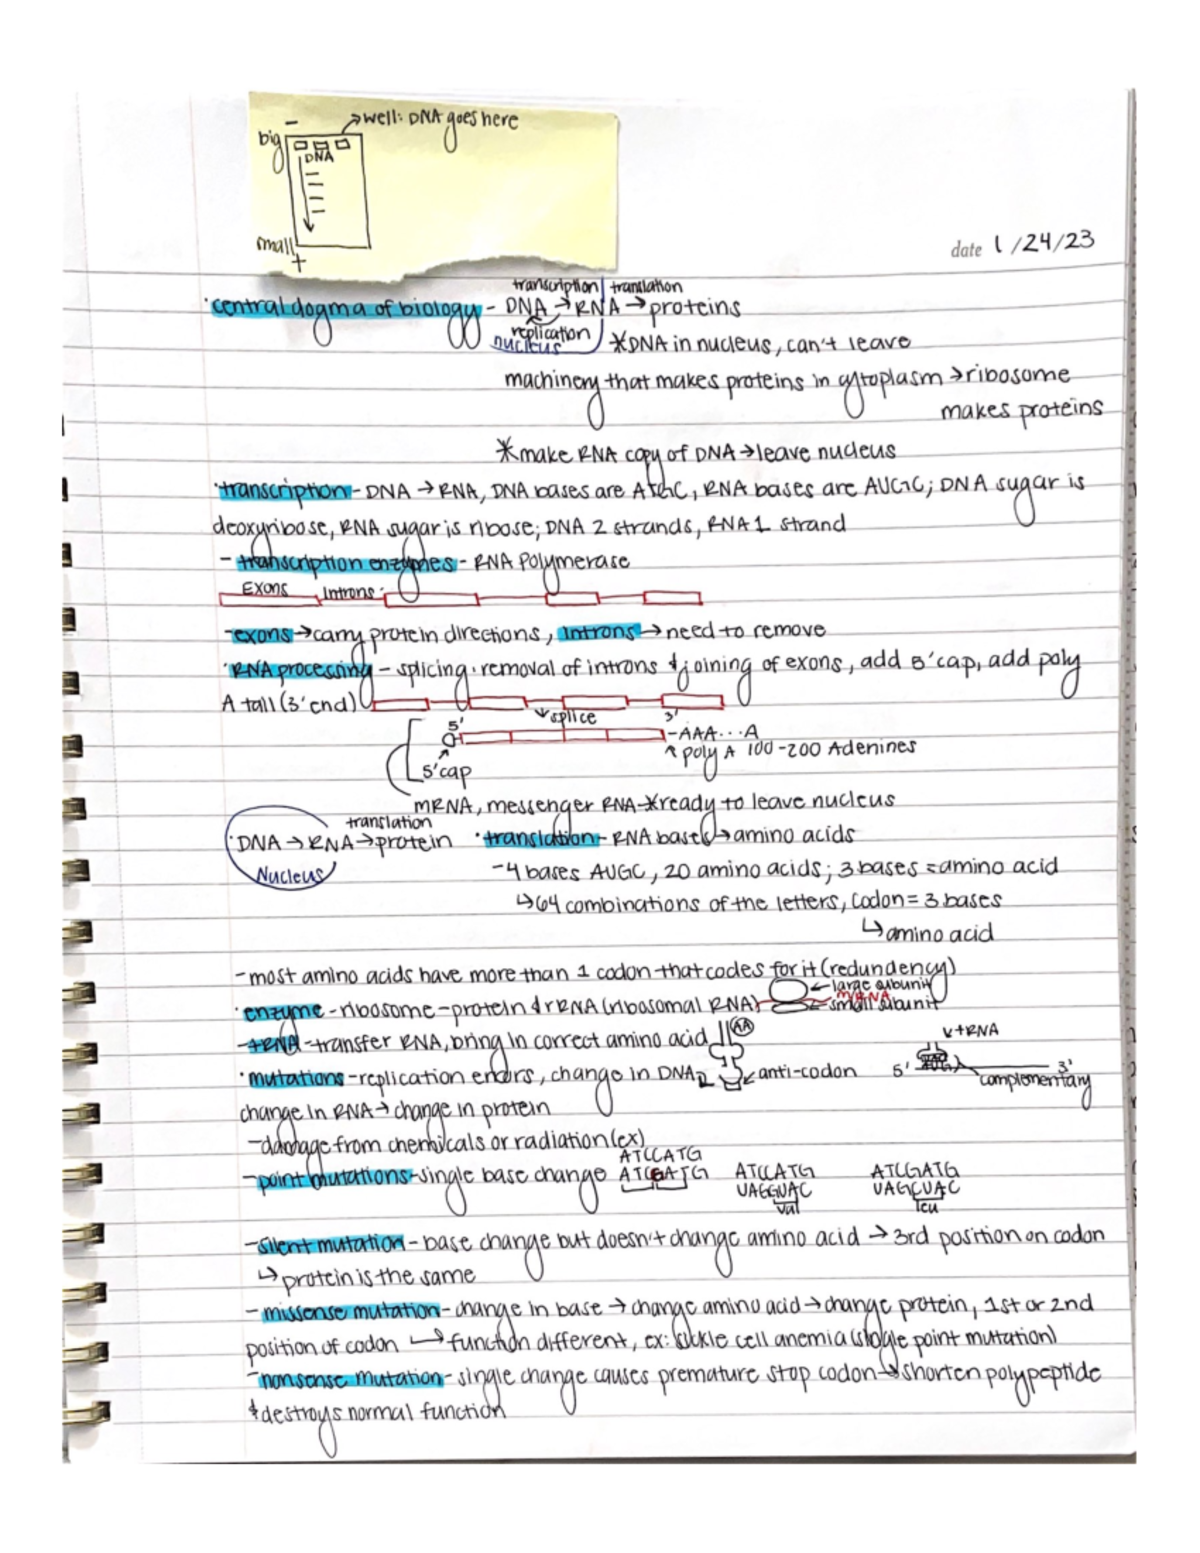 −
→well: DNA goes here
big
DNA
small
+
date 1/24/23
transcription | translation
·central dogma of biology - DNA → RNA → proteins
replication
nucleus
*DNA in nucleus, can't leave
machinery that makes proteins in cytoplasm → ribosome
makes proteins
*make RNA copy of DNA → leave nucleus
·transcription - DNA → RNA, DNA bases are ATGC, RNA bases are AUGC; DNA sugar is
deoxyribose, RNA sugar is ribose; DNA 2 strands, RNA 1 strand
- transcription enzymes - RNA Polymerase
Exons Introns
-exons → carry protein directions, introns → need to remove
·RNA processing - splicing · removal of introns & joining of exons, add 5' cap, add poly
A tail (3' end)
↓splice
5' 3'
-AAA...A
↑ poly A 100-200 Adenines
5' cap
mRNA, messenger RNA-*ready to leave nucleus
translation
·DNA → RNA → protein ·translation - RNA bases → amino acids
Nucleus
-4 bases AUGC, 20 amino acids; 3 bases = amino acid
↳64 combinations of the letters, codon = 3 bases
↳amino acid
-most amino acids have more than 1 codon that codes for it (redundency)
←large subunit
mRNA
·enzyme - ribosome - protein & rRNA (ribosomal RNA) ←small subunit
-tRNA - transfer RNA, bring in correct amino acid AA
↓tRNA
·mutations - replication errors, change in DNA ↙anti-codon 5' 3'
complementary
change in RNA → change in protein
-damage from chemicals or radiation (ex)
ATCCATG
-point mutations - single base change ATCGATG ATCCATG ATCGATG
UAGGUAC UAGCUAC
val leu
-silent mutation - base change but doesn't change amino acid → 3rd position on codon
↳protein is the same
- missense mutation - change in base → change amino acid → change protein, 1st or 2nd
position of codon ↳ function different, ex: sickle cell anemia (single point mutation)
-nonsense mutation - single change causes premature stop codon → shorten polypeptide
& destroys normal function